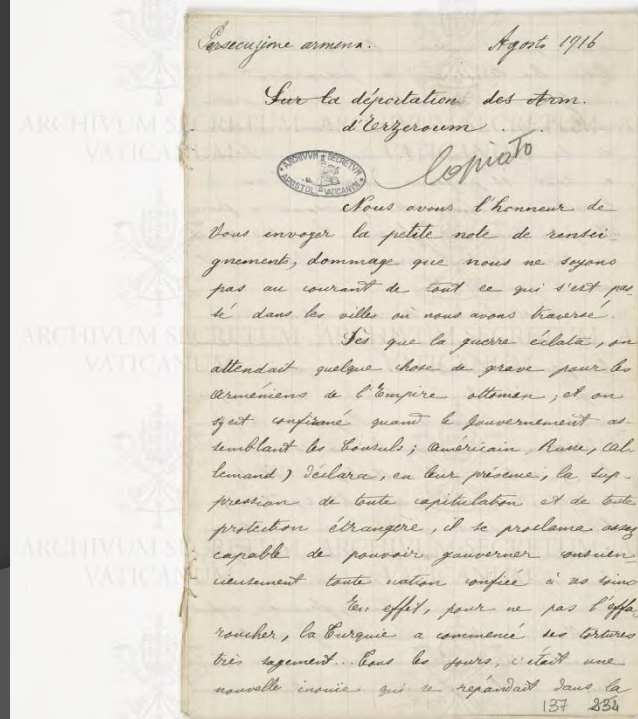 Persecuzione armena. Agosto 1916
Sur la déportation des Arm.
d'Erzeroum . .
ARCHIVVM SECRETVM APOSTOL. VATICANVM
Copiato
Nous avons l'honneur de
Vous envoyer la petite note de rensei-
gnements, dommage que nous ne soyons
pas au courant de tout ce qui s'est pas-
sé dans les villes où nous avons traversé.
Dès que la guerre éclata, on
attendait quelque chose de grave pour les
Arméniens de l'Empire ottoman; et on
fut confirmé quand le Gouvernement as-
semblant les Consuls; américain, Russe, (al-
lemand) déclara, en leur présence, la sup-
pression de toute capitulation et de toute
protection étrangère, il se proclama assez
capable de pouvoir gouverner conscien-
cieusement toute nation confiée à ses soins
En effet, pour ne pas l'effa-
roucher, la Turquie a commencé ses tortures
très sagement.. Tous les jours, c'était une
nouvelle inouie qui se répandait dans la
137 234
ARCHIVUM SECRETUM
VATICANUM